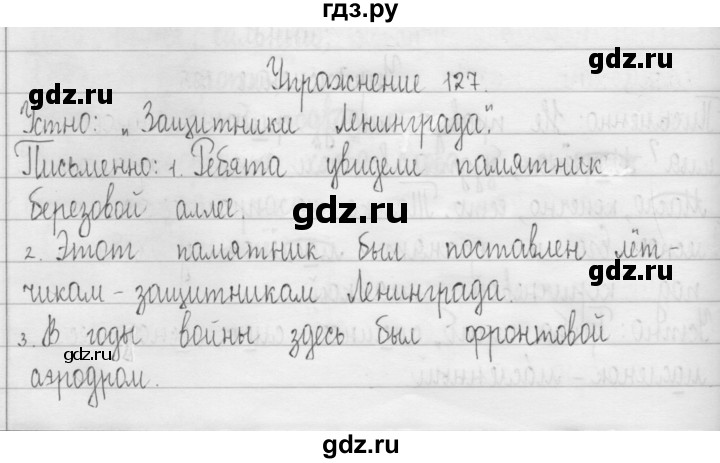 гдз.ру
gdz.ru
Упражнение 127.
gdz.ru
Устно: „Защитники Ленинграда".
gdz.ru
Письменно: 1. Ребята увидели памятник
березовой аллее.
gdz.ru
2. Этот памятник был поставлен лёт-
gdz.ru
чикам-защитникам Ленинграда.
3. В годы войны здесь был фронтовой
gdz.ru
gdz.ru
аэродром.
gdz.ru